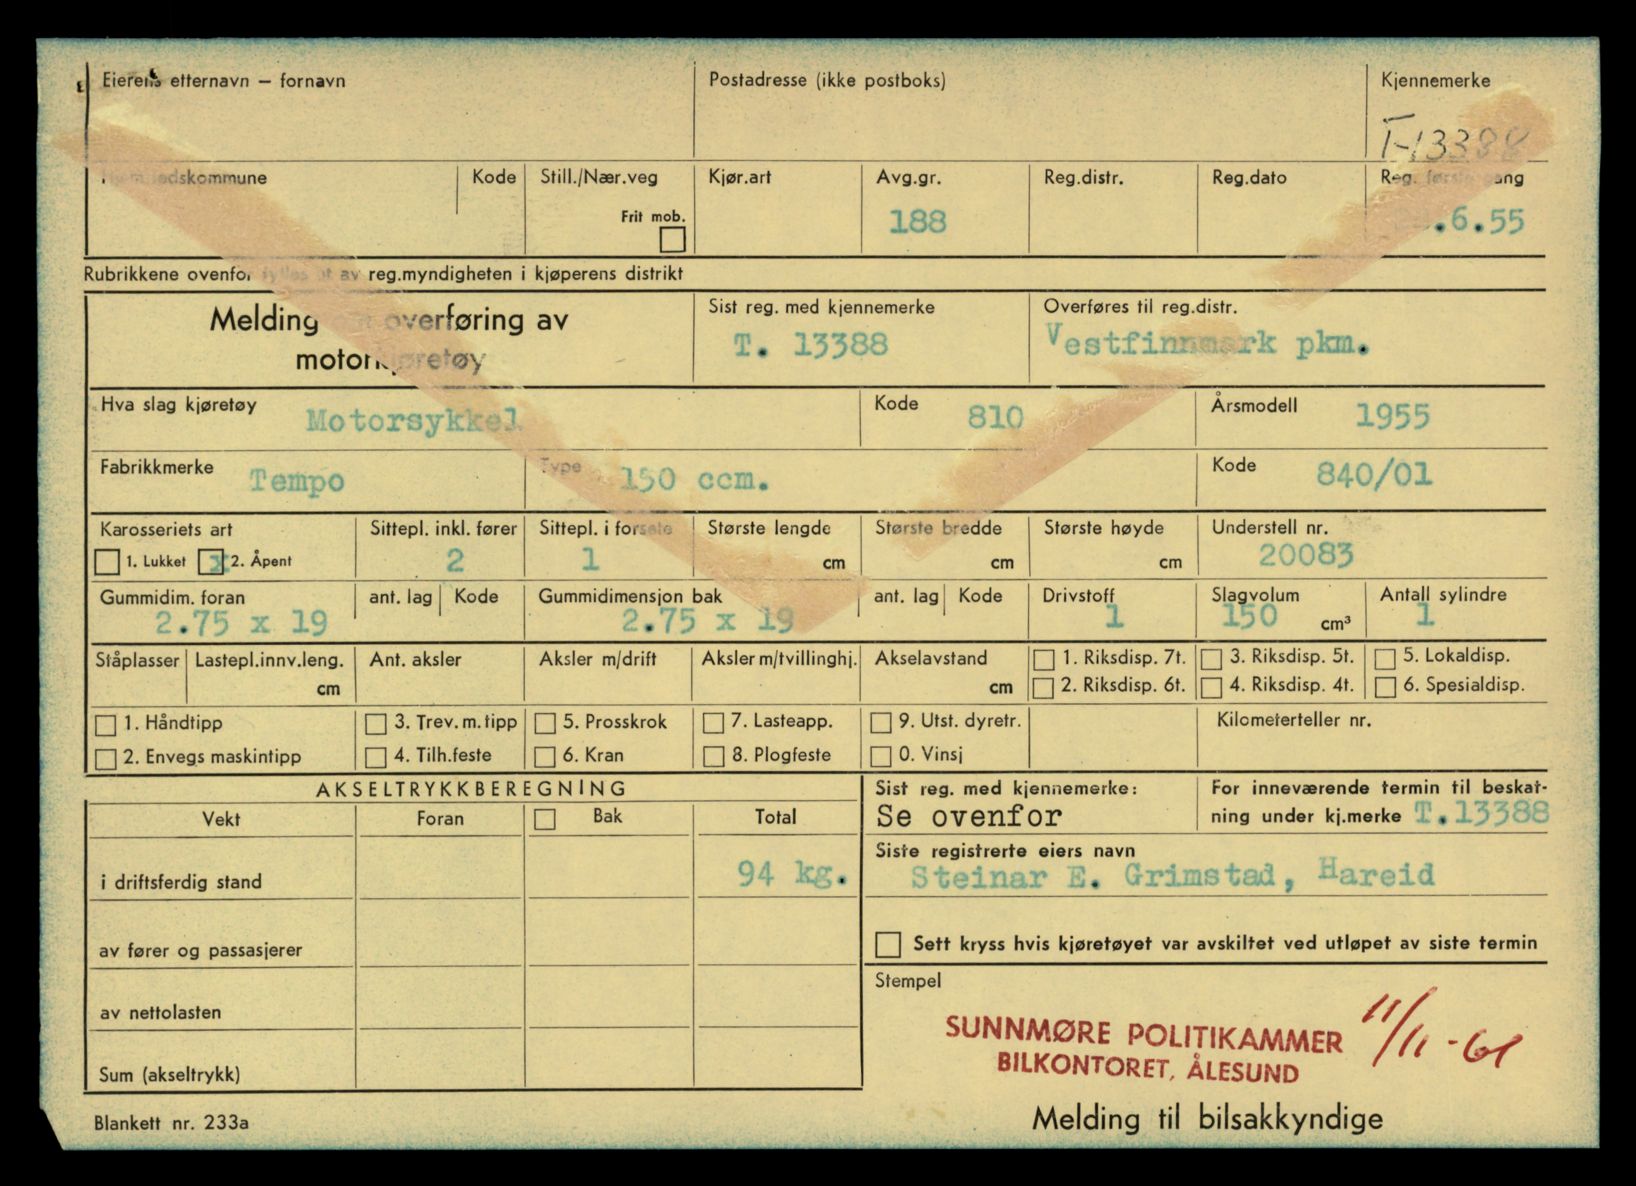 Eierens etternavn — fornavn
Postadresse (ikke postboks)
Kjennemerke
T-13388
Kode
Still./Nær.veg
Frit mob.
Kjør.art
Avg.gr.
188
Reg.distr.
Reg.dato
Reg. første gang
.6.55
Rubrikkene ovenfor fylles ut av reg.myndigheten i kjøperens distrikt
Melding om overføring av
motorkjøretøy
Sist reg. med kjennemerke
T. 13388
Overføres til reg.distr.
Vestfinnmark pkm.
Hva slag kjøretøy
Motorsykkel
Kode
810
Årsmodell
1955
Fabrikkmerke
Tempo
Type
150 ccm.
Kode
840/01
Karosseriets art
1. Lukket x 2. Åpent
Sittepl. inkl. fører
2
Sittepl. i forsete
1
Største lengde
cm
Største bredde
cm
Største høyde
cm
Understell nr.
20083
Gummidim. foran
2.75 x 19
ant. lag
Kode
Gummidimensjon bak
2.75 x 19
ant. lag
Kode
Drivstoff
1
Slagvolum
150 cm³
Antall sylindre
1
Ståplasser
Lastepl.innv.leng.
cm
Ant. aksler
Aksler m/drift
Aksler m/tvillinghj.
Akselavstand
cm
1. Riksdisp. 7t.
2. Riksdisp. 6t.
3. Riksdisp. 5t.
4. Riksdisp. 4t.
5. Lokaldisp.
6. Spesialdisp.
1. Håndtipp
2. Envegs maskintipp
3. Trev.m.tipp
4. Tilh.feste
5. Prosskrok
6. Kran
7. Lasteapp.
8. Plogfeste
9. Utst. dyretr.
0. Vinsj
Kilometerteller nr.
AKSELTRYKKBEREGNING
Vekt
Foran
Bak
Total
i driftsferdig stand
94 kg.
av fører og passasjerer
av nettolasten
Sum (akseltrykk)
Sist reg. med kjennemerke:
Se ovenfor
For inneværende termin til beskat-
ning under kj.merke T.13388
Siste registrerte eiers navn
Steinar E. Grimstad, Hareid
Sett kryss hvis kjøretøyet var avskiltet ved utløpet av siste termin
Stempel
SUNNMØRE POLITIKAMMER
BILKONTORET, ÅLESUND
11/11-61
Blankett nr. 233a
Melding til bilsakkyndige